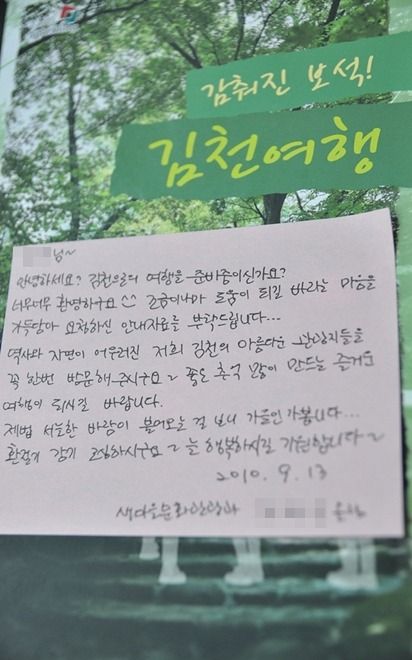 감춰진 보석!
김천여행
님~
안녕하세요? 김천으로의 여행을 준비중이신가요?
너무너무 환영하구요 ^^ 조금이나마 도움이 되길 바라는 마음을
가득담아 요청하신 안내자료를 부쳐드립니다...
역사와 자연이 어우러진 저희 김천의 아름다운 관광지들을
꼭 한번 방문해 주시구요~ 좋은 추억 많이 만드는 즐거운
여행이 되시길 바랍니다.
제법 서늘한 바람이 불어오는 걸 보니 가을인가봅니다...
환절기 감기 조심하시구요~ 늘 행복하시길 기원합니다~
2010. 9. 13
새마을문화관광과 올림